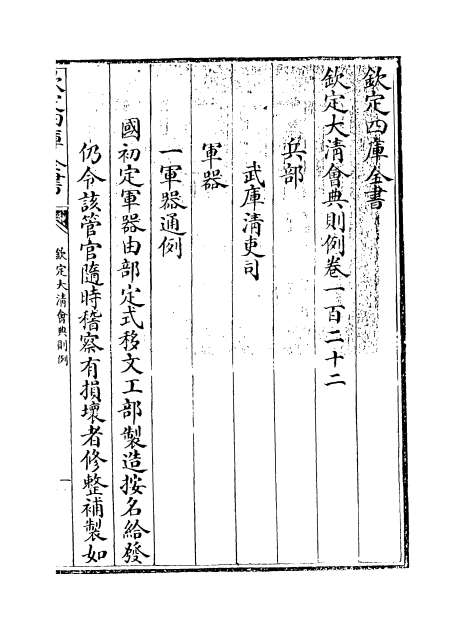 欽定四庫全書
欽定大清會典則例卷一百二十二
兵部
武庫清吏司
軍器
一軍器通例
國初定軍器由部定式移文工部製造按名給發
仍令該管官隨時稽察有損壞者修整補製如
欽定四庫全書
欽定大清會典則例
一